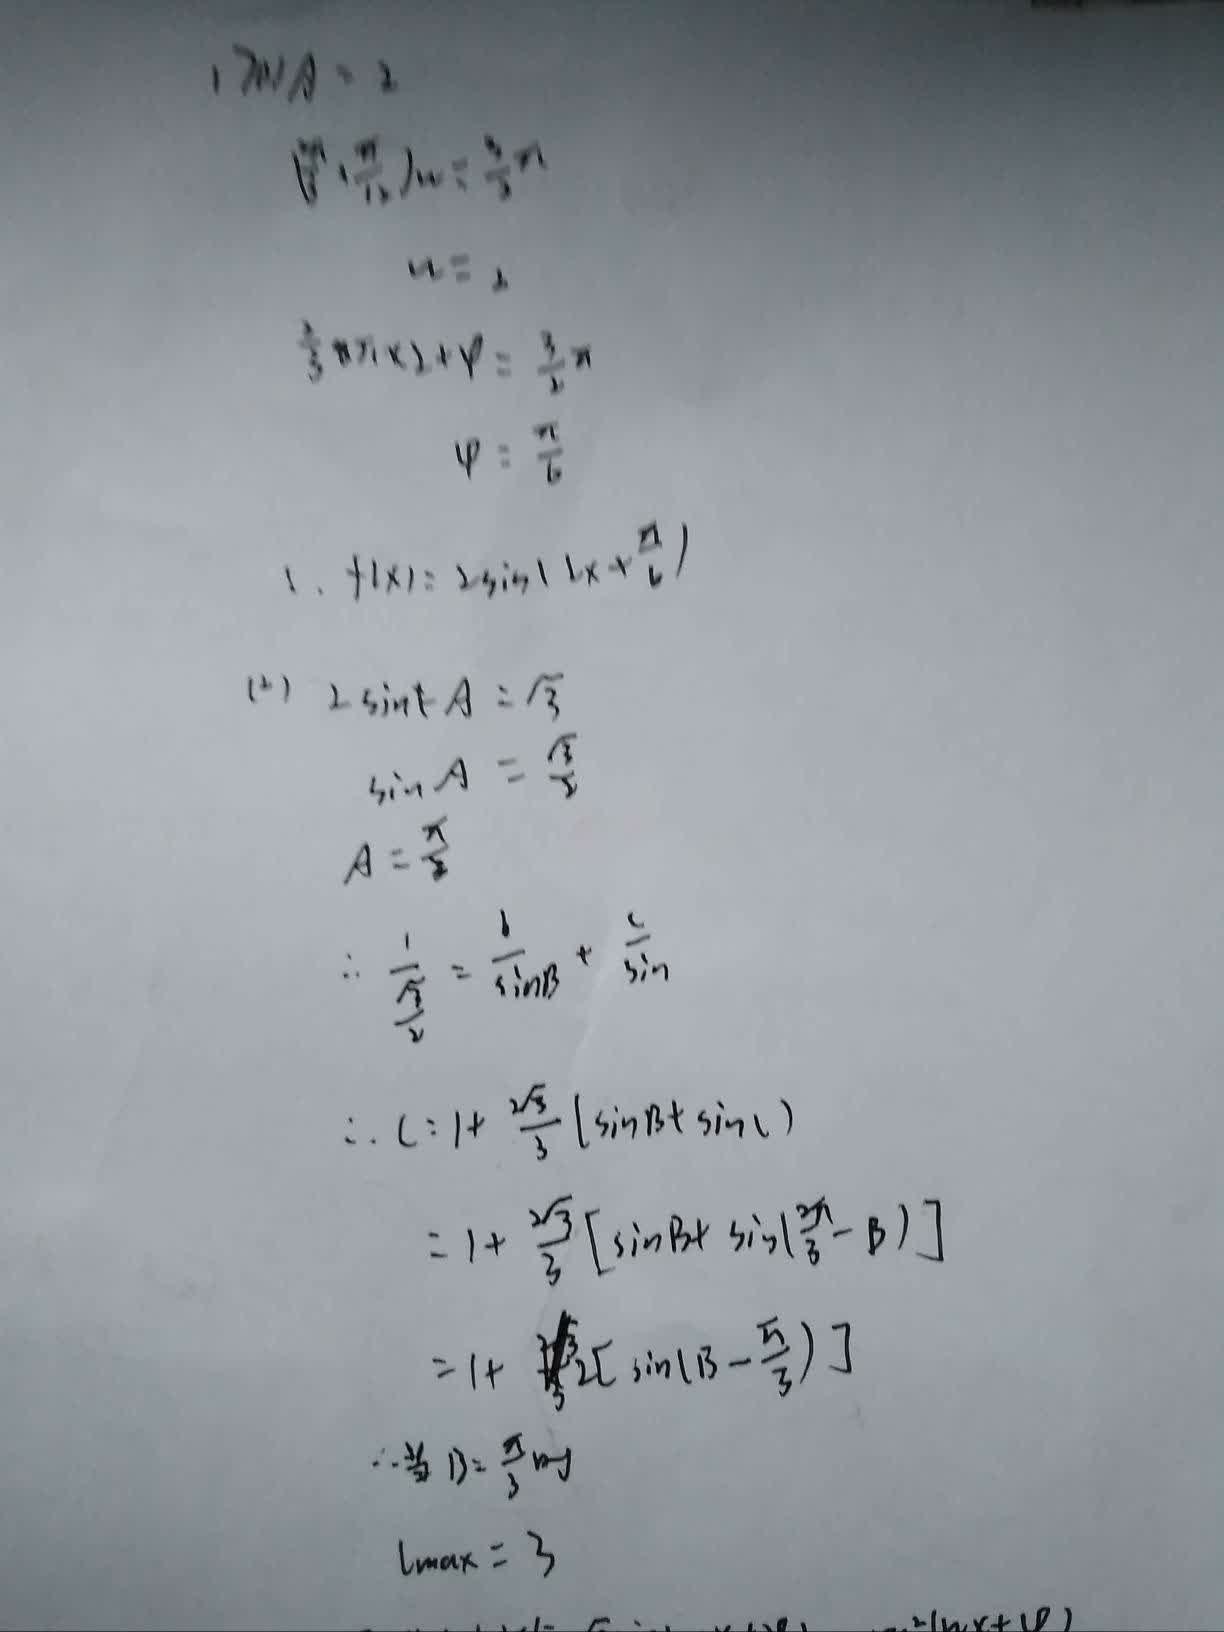 A = 2
(2π/3 + π/12)w = 3/2 π
w = 2
2/3 π × 2 + φ = 3/2 π
φ = π/6
∴ f(x) = 2sin(2x + π/6)
(2) 2 sin A = √3
sin A = √3/2
A = π/3
∴ 1/(√3/2) = b/sinB + c/sin
∴ C = 1 + 2√3/3 (sinB + sinC)
= 1 + 2√3/3 [sinB + sin(2π/3 - B)]
= 1 + 2[sin(B - π/3)]
∴当 B = π/3 时
Lmax = 3